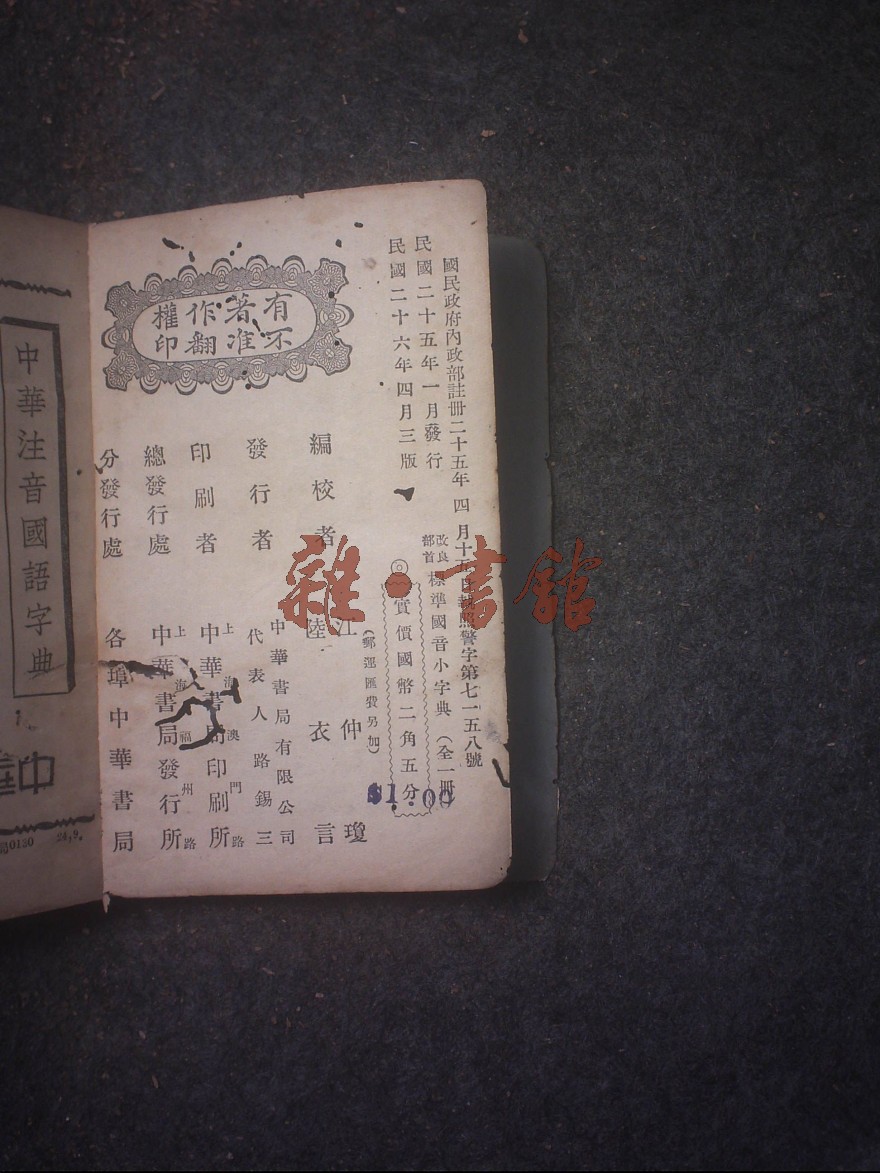 國民政府內政部註冊二十五年四月十五日執照警字第七一五八號
民國二十五年一月發行
民國二十六年四月三版
改良部首標準國音小字典（全一冊）
實價國幣二角五分
（郵運匯費另加）
編校者 江仲瓊
陸衣言
發行者 中華書局有限公司
代表人路錫三
印刷者 上海澳門路
中華書局印刷所
總發行處 上海福州路
中華書局發行所
分發行處 各埠中華書局
有著作權
不准翻印
中華注音國語字典
雜·書館